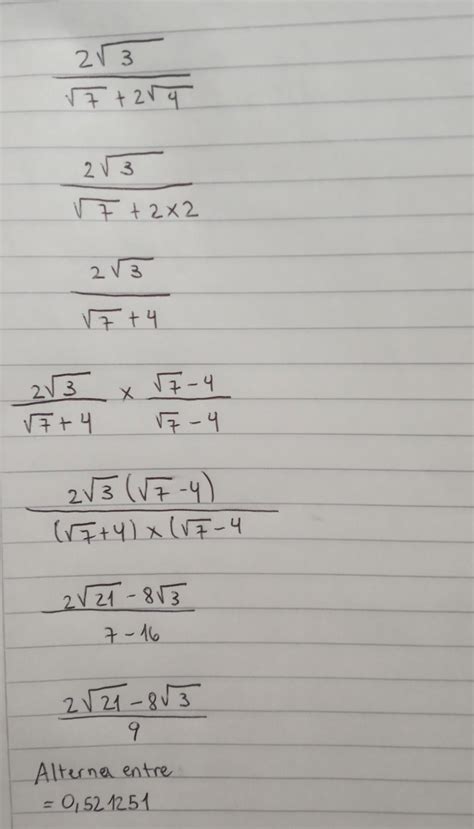 2√3
√7 + 2√4
2√3
√7 + 2×2
2√3
√7 + 4
2√3 × √7 - 4
√7 + 4 √7 - 4
2√3 (√7 - 4)
(√7 + 4) × (√7 - 4
2√21 - 8√3
7 - 16
2√21 - 8√3
9
Alterna entre
= 0,521251